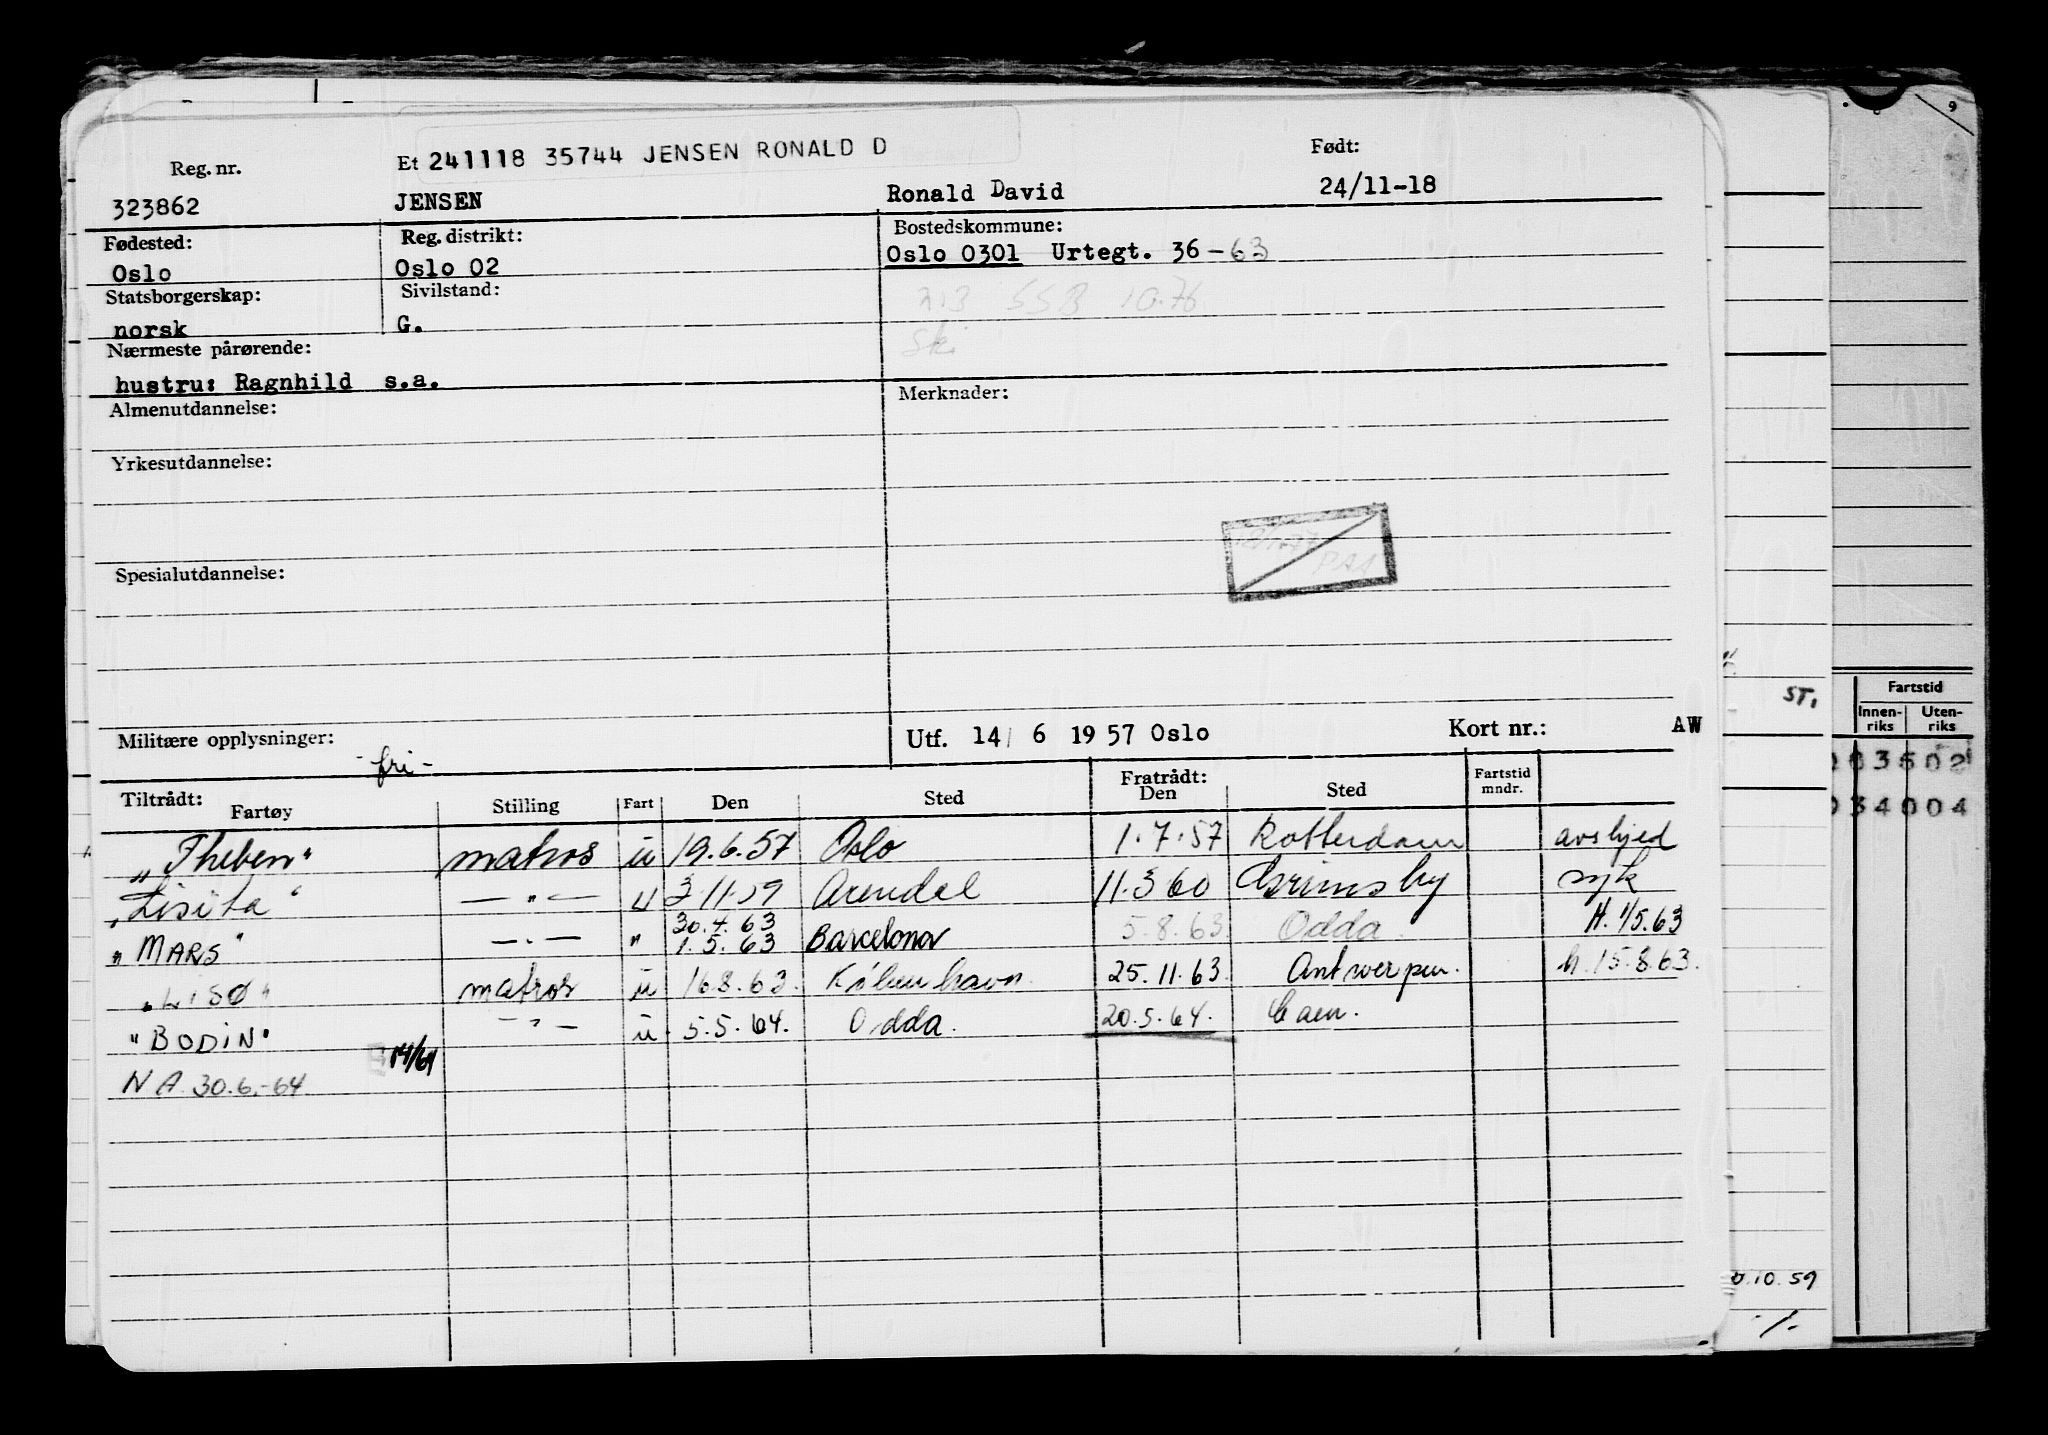 9
Et 241118 35744 JENSEN RONALD D
Reg. nr. Født:
323862 JENSEN Ronald David 24/11-18
Fødested: Reg. distrikt: Bostedskommune:
Oslo Oslo 02 Oslo 0301 Urtegt. 36 -63
Statsborgerskap: Sivilstand: 213 SSB 10.76
norsk G. Ski
Nærmeste pårørende:
hustru: Ragnhild s.a.
Almenutdannelse: Merknader:
Yrkesutdannelse:
Spesialutdannelse:
Militære opplysninger: -fri- Utf. 14/ 6 19 57 Oslo Kort nr.: AW
Tiltrådt: Fartøy Stilling Fart Den Sted Fratrådt: Den Sted Fartstid mndr.
"Theben" matros u 19.6.57 Oslo 1.7.57 Rotterdam avskjed
"Lisita" — " — u 3.11.59 Arendal 11.3 60 Grimsby syk
"MARS" — " — " 30.4.63 1.5.63 Barcelona 5.8.63 Odda H. 1/5.63
"LISØ" matros u 16.8.63. København. 25.11.63 Antwerpen. h. 15.8.63.
"BODIN" — " — u. 5.5.64. Odda. 20.5.64. Caen.
N A. 30.6.-64
ST.
Fartstid
Innen-riks Uten-riks
10.59